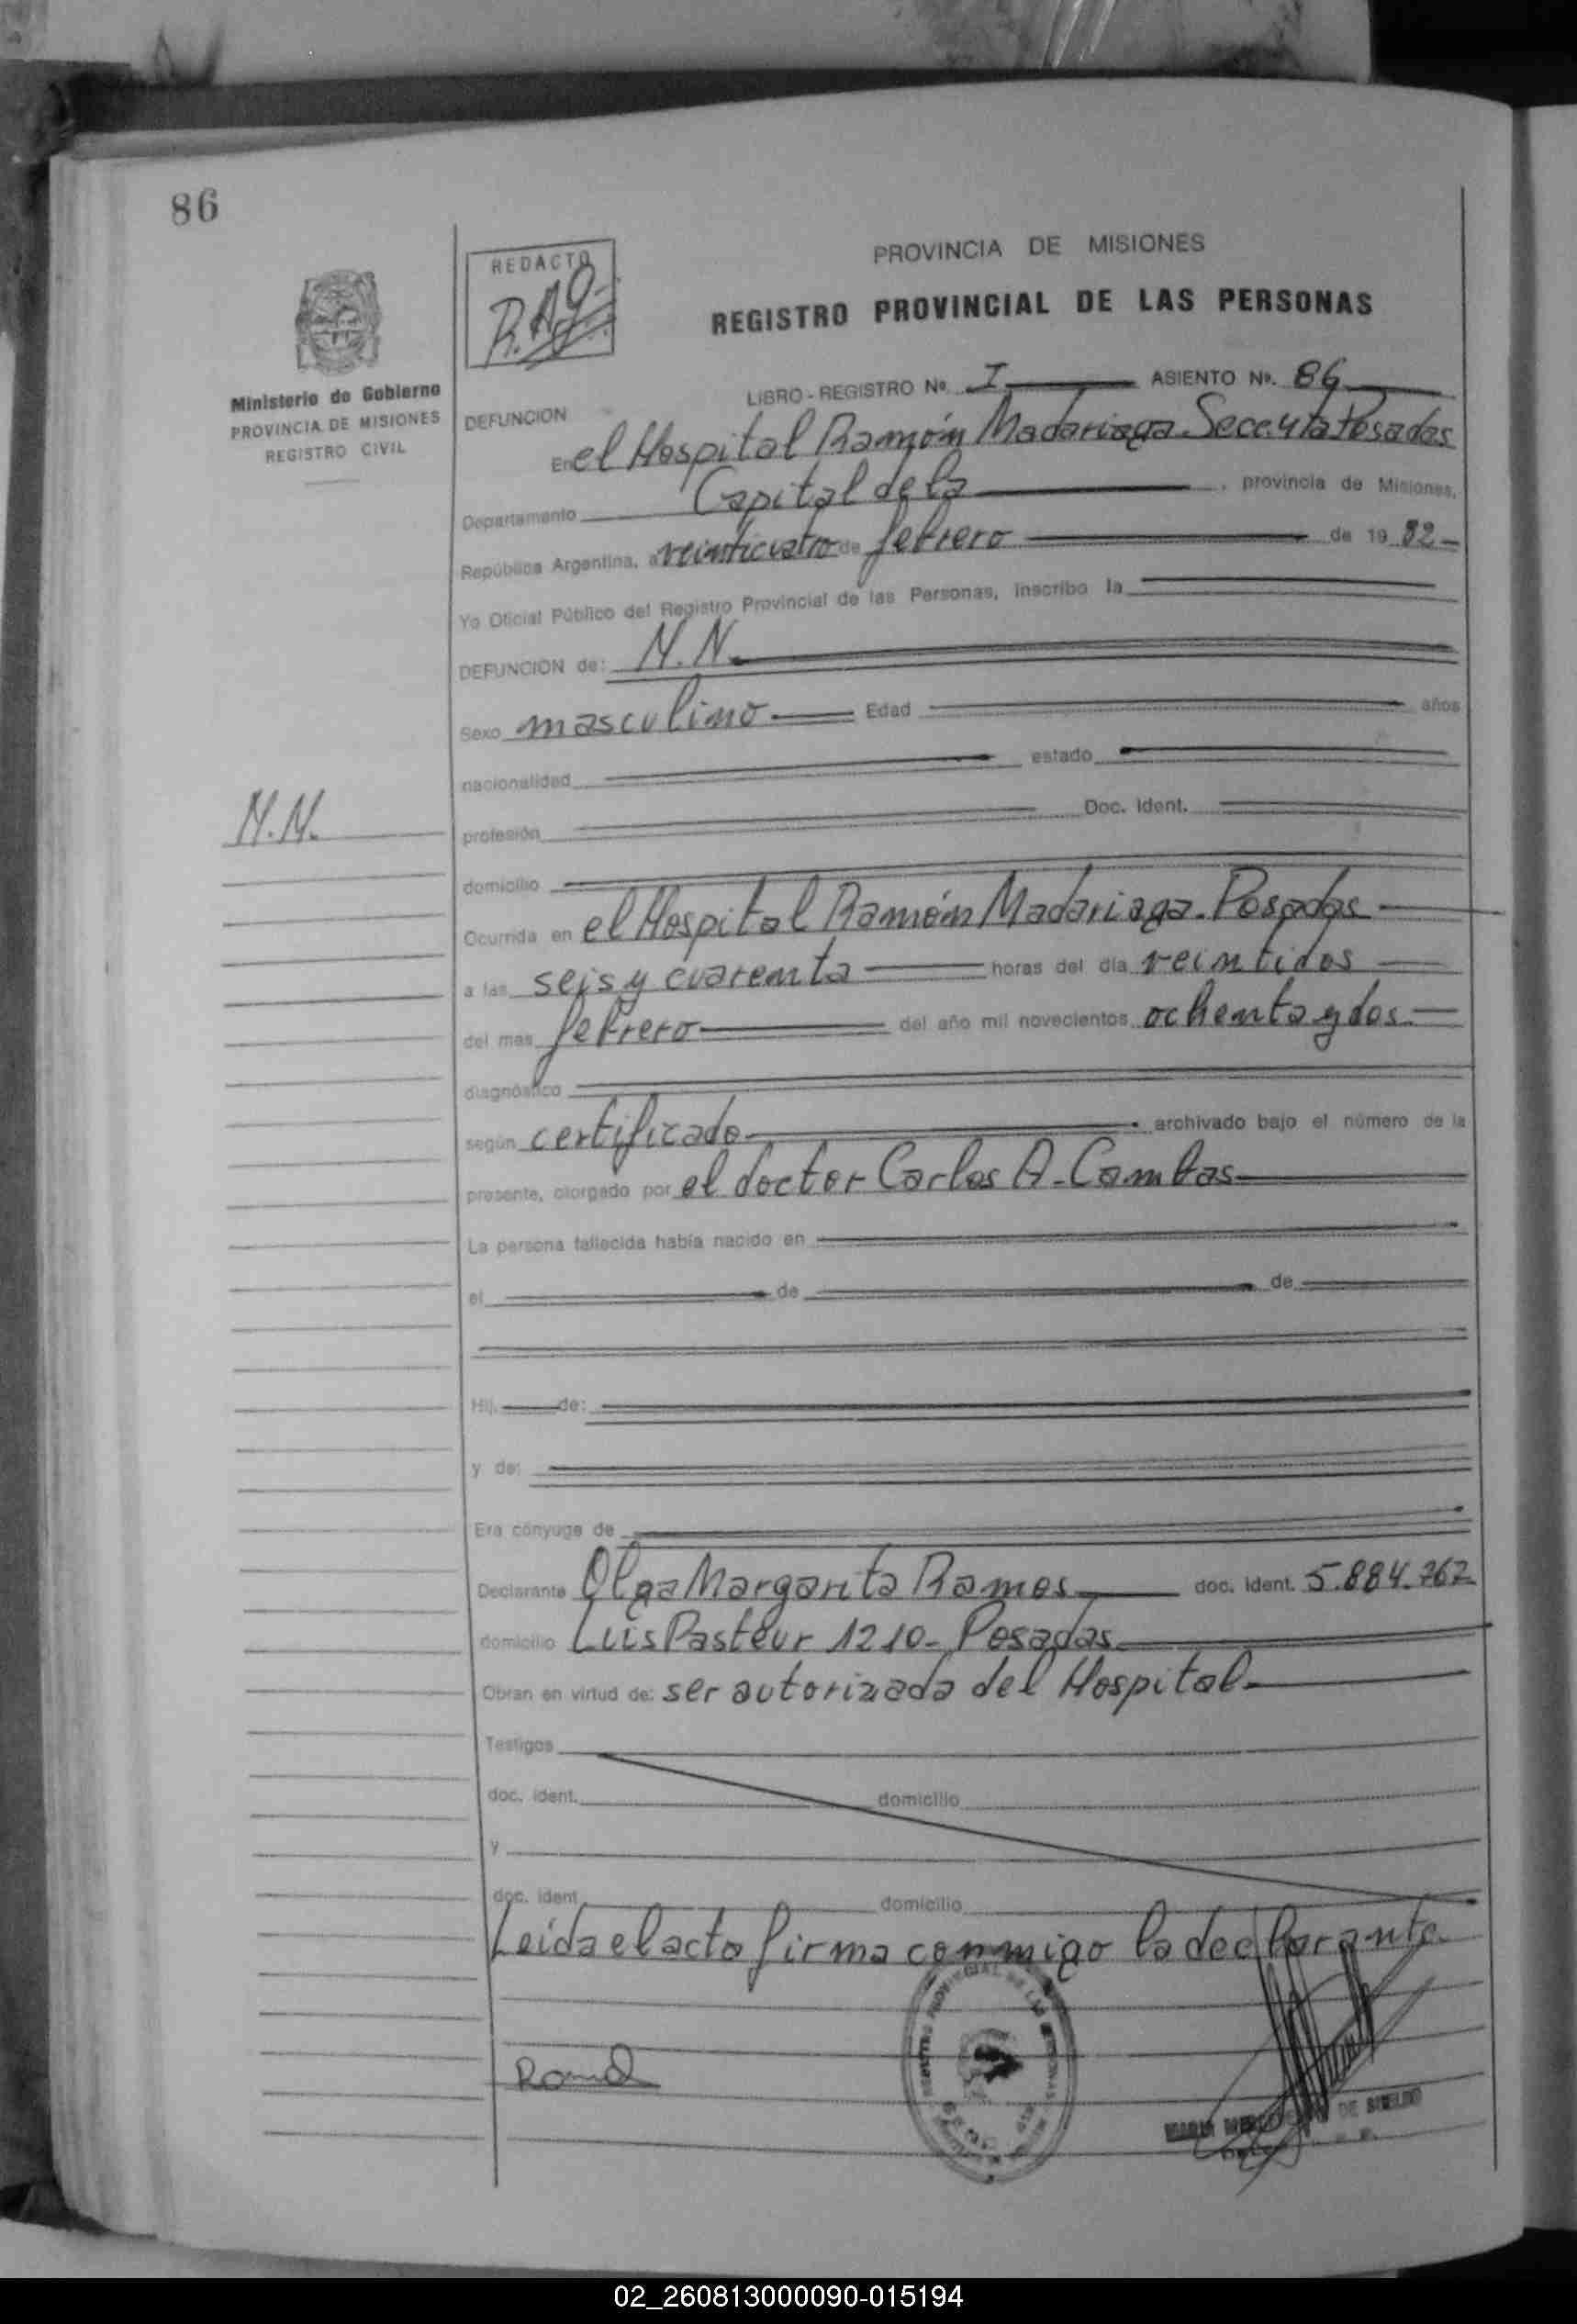 86
REDACTO
R.A.G.
PROVINCIA DE MISIONES
REGISTRO PROVINCIAL DE LAS PERSONAS
Ministerio de Gobierno
PROVINCIA DE MISIONES
REGISTRO CIVIL
LIBRO - REGISTRO Nº. I ASIENTO Nº. 86
DEFUNCION
En el Hospital Ramón Madariaga. Secc. 4ta Posadas
Departamento Capital de la , provincia de Misiones,
República Argentina, a veinticuatro de febrero de 19 82
Yo Oficial Público del Registro Provincial de las Personas, inscribo la
DEFUNCION de: N.N.
Sexo masculino Edad años
nacionalidad estado
N.N.
profesión Doc. Ident.
domicilio
Ocurrida en el Hospital Ramón Madariaga. Posadas
a las seis y cuarenta horas del día veintidos
del mes febrero del año mil novecientos ochenta y dos
diagnóstico
según certificado archivado bajo el número de la
presente, otorgado por el doctor Carlos A. Cambas
La persona fallecida había nacido en
el de de
Hij de:
y de:
Era cónyuge de
Declarante Olga Margarita Ramos doc. ident. 5.884.767
domicilio Luis Pasteur 1210 - Posadas
Obran en virtud de: ser autorizada del Hospital
Testigos
doc. ident. domicilio
y
doc. ident domicilio
Leida el acta firma conmigo la declarante.
DE
02_260813000090-015194